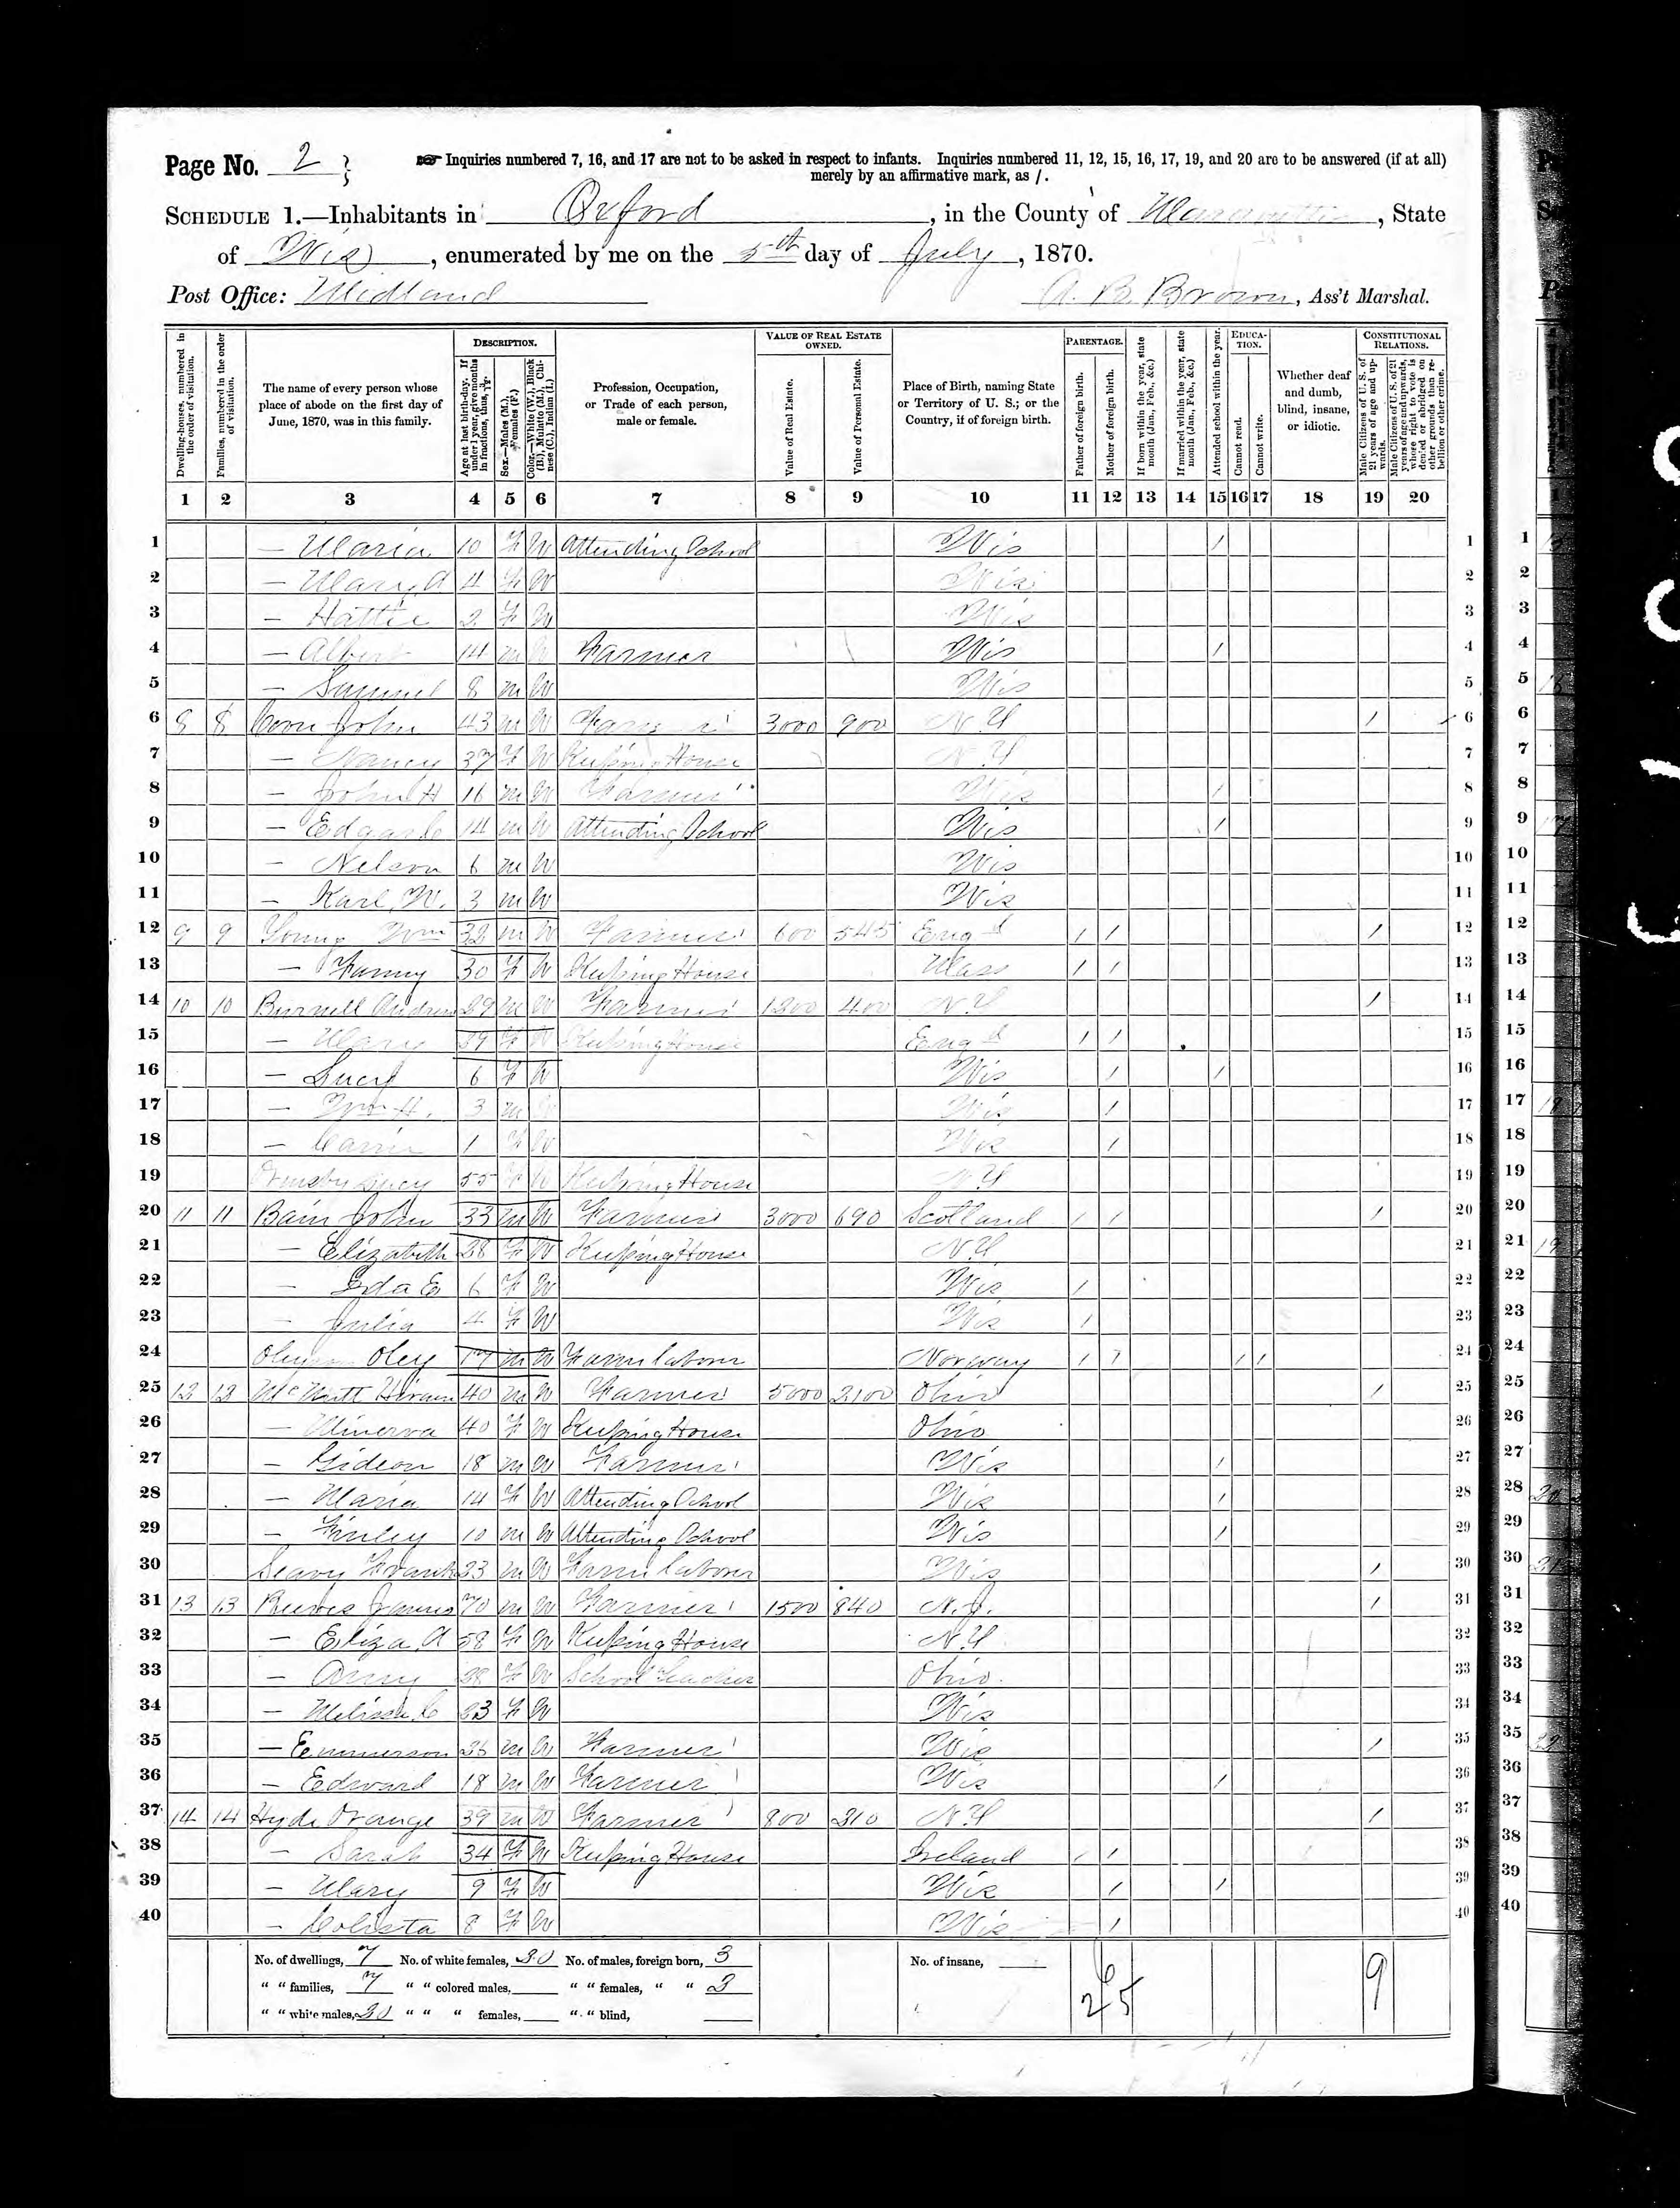 Page No. 2
Inquiries numbered 7, 16, and 17 are not to be asked in respect to infants. Inquiries numbered 11, 12, 15, 16, 17, 19, and 20 are to be answered (if at all)
merely by an affirmative mark, as /.
SCHEDULE 1.—Inhabitants in Oxford, in the County of Marquette, State
of Wis, enumerated by me on the 5th day of July, 1870.
Post Office: Midland A. B. Brown, Ass't Marshal.
Dwelling-houses, numbered in the order of visitation.
Families, numbered in the order of visitation.
The name of every person whose place of abode on the first day of June, 1870, was in this family.
DESCRIPTION.
Age at last birth-day. If under 1 year, give months in fractions, thus, 3/12.
Sex.—Males (M.), Females (F.)
Color.—White (W.), Black (B.), Mulatto (M.), Chinese (C.), Indian (I.)
Profession, Occupation, or Trade of each person, male or female.
VALUE OF REAL ESTATE OWNED.
Value of Real Estate.
Value of Personal Estate.
Place of Birth, naming State or Territory of U. S.; or the Country, if of foreign birth.
PARENTAGE.
Father of foreign birth.
Mother of foreign birth.
If born within the year, state month (Jan., Feb., &c.)
If married within the year, state month (Jan., Feb., &c.)
Attended school within the year.
EDUCATION.
Cannot read.
Cannot write.
Whether deaf and dumb, blind, insane, or idiotic.
CONSTITUTIONAL RELATIONS.
Male Citizens of U. S. of 21 years of age and upwards.
Male Citizens of U. S. of 21 years of age and upwards, whose right to vote is denied or abridged on other grounds than rebellion or other crime.
1 2 3 4 5 6 7 8 9 10 11 12 13 14 15 16 17 18 19 20
1 — Maria 10 F W Attending School Wis / 1
2 — Mary A 4 F W Wis 2
3 — Hattie 2 F W Wis 3
4 — Albert 14 m W Farmer Wis / 4
5 — Samuel 8 m W Wis 5
6 8 8 Coon John 43 m W Farmer 3000 900 N.Y / 6
7 — Nancy 37 F W Keeping House N.Y 7
8 — John H 16 m W Farmer Wis / 8
9 — Edgar C 14 m W Attending School Wis / 9
10 — Nelson 6 m W Wis 10
11 — Karl W. 3 m W Wis 11
12 9 9 Young Wm 32 m W Farmer 600 545 Engd / / / 12
13 — Fanny 30 F W Keeping House Mass / / 13
14 10 10 Burnell Andrew 29 m W Farmer 1200 400 N.Y / 14
15 — Mary 29 F W Keeping House Engd / / 15
16 — Lucy 6 F W Wis / / 16
17 — Wm H. 3 m W Wis / 17
18 — Carrie 1 F W Wis / 18
19 Ormsby Lucy 55 F W Keeping House N.Y 19
20 11 11 Bain John 33 m W Farmer 3000 690 Scotland / / / 20
21 — Elizabeth 28 F W Keeping House N.Y 21
22 — Ida E 6 F W Wis / 22
23 — Julia 4 F W Wis / 23
24 Oley 17 m W Farm laborer Norway / / / / 24
25 12 12 McNutt Hiram 40 m W Farmer 5000 2100 Ohio / 25
26 — Minerva 40 F W Keeping House Ohio 26
27 — Gideon 18 m W Farmer Wis / 27
28 — Maria 14 F W Attending School Wis / 28
29 — Finley 10 m W Attending School Wis / 29
30 Seavy Frank 23 m W Farm laborer Wis / 30
31 13 13 Reeves James 70 m W Farmer 1500 840 N.J. / 31
32 — Eliza A 58 F W Keeping House N.Y 32
33 — Amy 28 F W School Teacher Ohio. 33
34 — Melissa C 23 F W Wis 34
35 — Emmerson m W Farmer Wis / 35
36 — Edward 18 m W Farmer Wis / 36
37 14 14 Hyde Orange 39 m W Farmer 800 210 N.Y / 37
38 — Sarah 34 F W Keeping House Ireland / / 38
39 — Mary 9 F W Wis / / 39
40 — Colista 8 F W Wis / 40
No. of dwellings, 7 No. of white females, 20 No. of males, foreign born, 3 No. of insane,
" " families, 7 " " colored males, " " females, " " 2
" " white males, 20 " " " females, " " blind,
6
2 5
9